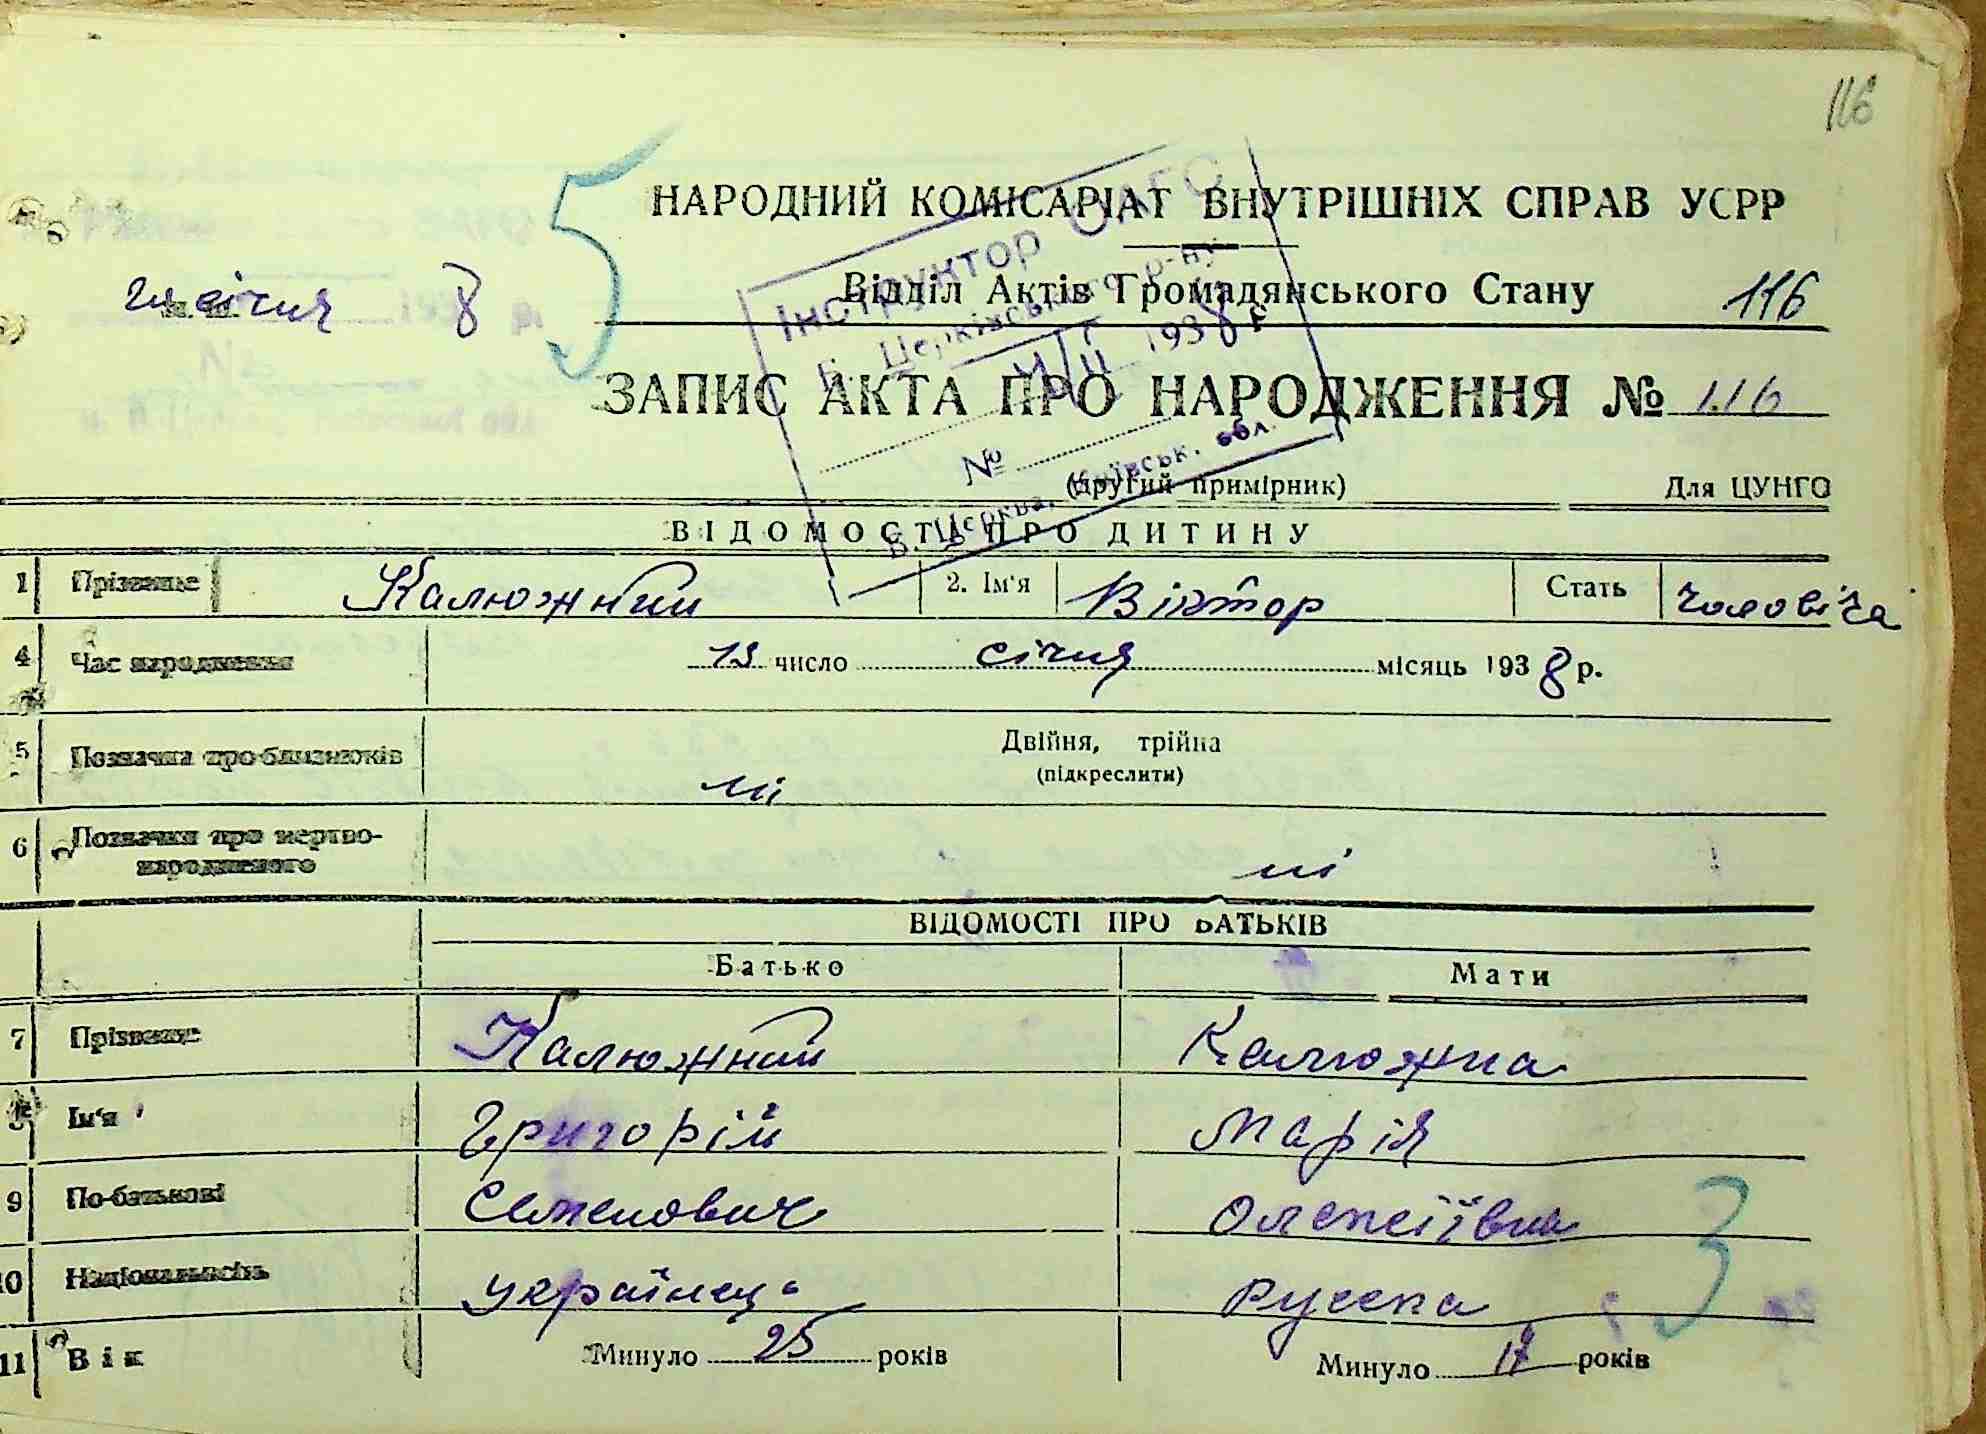 116
НАРОДНИЙ КОМІСАРІАТ ВНУТРІШНІХ СПРАВ УСРР
січня 8
Відділ Актів Громадянського Стану 116
5
Інструктор ОАГС
Б. Церківського р-ну
1938 р
№
Б. Церква, Київськ. обл.
ЗАПИС АКТА ПРО НАРОДЖЕННЯ № 116
(другий примірник) Для ЦУНГО
ВІДОМОСТІ ПРО ДИТИНУ
1 Прізвище Калюжний 2. Ім'я Віктор Стать чоловіча
4 Час народження 13 число січня місяць 1938 р.
5 Позначка про близнюків Двійня, трійна
(підкреслити)
ні
6 Позначки про мертво-
народженого ні
ВІДОМОСТІ ПРО БАТЬКІВ
Батько Мати
7 Прізвище Калюжний Калюжна
8 Ім'я Григорій Марія
9 По-батькові Семенович Олексіївна
10 Національність українець руська
3
11 Вік Минуло 25 років Минуло років